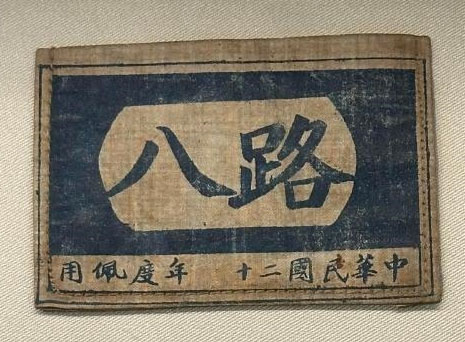 八路
中華民國二十 年度佩用